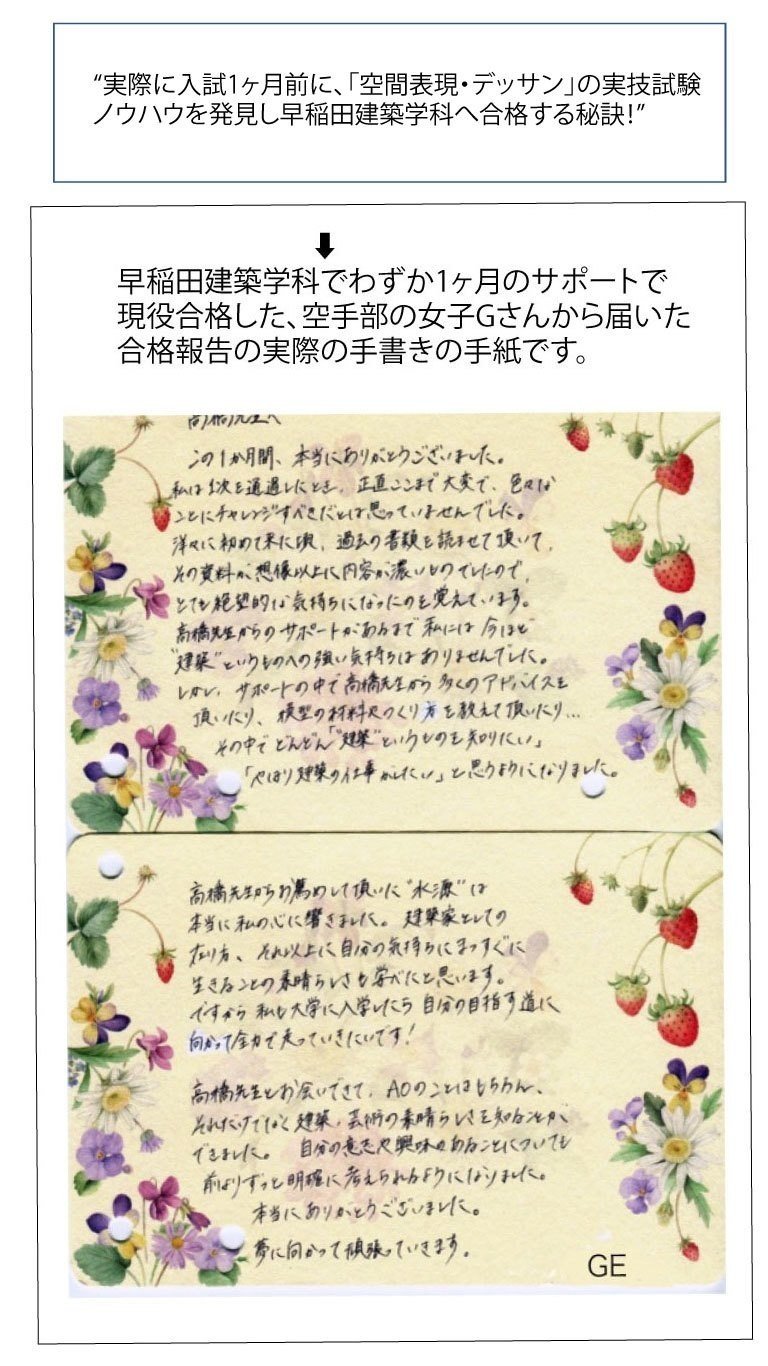 “実際に入試1ヶ月前に、「空間表現・デッサン」の実技試験
ノウハウを発見し早稲田建築学科へ合格する秘訣!”
早稲田建築学科でわずか1ヶ月のサポートで
現役合格した、空手部の女子Gさんから届いた
合格報告の実際の手書きの手紙です。
高橋先生へ
この1か月間、本当にありがとうございました。
私は1次を通過したとき、正直ここまで大変で、色々な
ことにチャレンジすべきだとは思っていませんでした。
洋々に初めて来た頃、過去の書類を読ませて頂いて、
その資料が想像以上に内容が濃いものでしたので、
とても絶望的な気持ちになったのを覚えています。
高橋先生からのサポートがあるまで私には今ほど
“建築”というものへの強い気持ちはありませんでした。
しかし、サポートの中で高橋先生から多くのアドバイスを
頂いたり、模型の材料やつくり方を教えて頂いたり…
その中でどんどん「“建築”というものを知りたい」
「やはり建築の仕事がしたい」と思うようになりました。
高橋先生からお薦めして頂いた“水源”は
本当に私の心に響きました。建築家としての
在り方、それ以上に自分の気持ちにまっすぐに
生きることの素晴らしさも学べたと思います。
ですから私も大学に入学したら自分の目指す道に
向かって全力で走っていきたいです!
高橋先生とお会いできて、AOのことはもちろん、
それだけでなく建築、芸術の素晴らしさを知ることが
できました。自分の意志や興味のあることについても
前よりずっと明確に考えられるようになりました。
本当にありがとうございました。
夢に向かって頑張っていきます。
GE